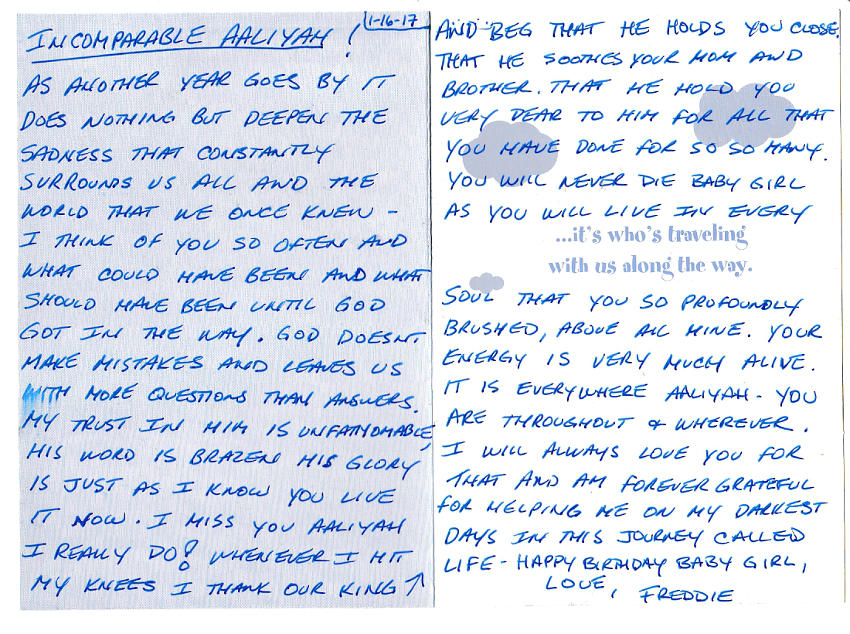 1-16-17
INCOMPARABLE AALIYAH!
AS ANOTHER YEAR GOES BY IT
DOES NOTHING BUT DEEPEN THE
SADNESS THAT CONSTANTLY
SURROUNDS US ALL AND THE
WORLD THAT WE ONCE KNEW -
I THINK OF YOU SO OFTEN AND
WHAT COULD HAVE BEEN AND WHAT
SHOULD HAVE BEEN UNTIL GOD
GOT IN THE WAY. GOD DOESN'T
MAKE MISTAKES AND LEAVES US
WITH MORE QUESTIONS THAN ANSWERS.
MY TRUST IN HIM IS UNFATHOMABLE,
HIS WORD IS BRAZEN HIS GLORY
IS JUST AS I KNOW YOU LIVE
IT NOW. I MISS YOU AALIYAH
I REALLY DO! WHENEVER I HIT
MY KNEES I THANK OUR KING ↑
AND BEG THAT HE HOLDS YOU CLOSE.
THAT HE SOOTHES YOUR MOM AND
BROTHER. THAT HE HOLD YOU
VERY DEAR TO HIM FOR ALL THAT
YOU HAVE DONE FOR SO SO MANY.
YOU WILL NEVER DIE BABY GIRL
AS YOU WILL LIVE IN EVERY
...it's who's traveling
with us along the way.
SOUL THAT YOU SO PROFOUNDLY
BRUSHED, ABOVE ALL MINE. YOUR
ENERGY IS VERY MUCH ALIVE.
IT IS EVERYWHERE AALIYAH - YOU
ARE THROUGHOUT & WHEREVER.
I WILL ALWAYS LOVE YOU FOR
THAT AND AM FOREVER GRATEFUL
FOR HELPING ME ON MY DARKEST
DAYS IN THIS JOURNEY CALLED
LIFE - HAPPY BIRTHDAY BABY GIRL,
LOVE, FREDDIE